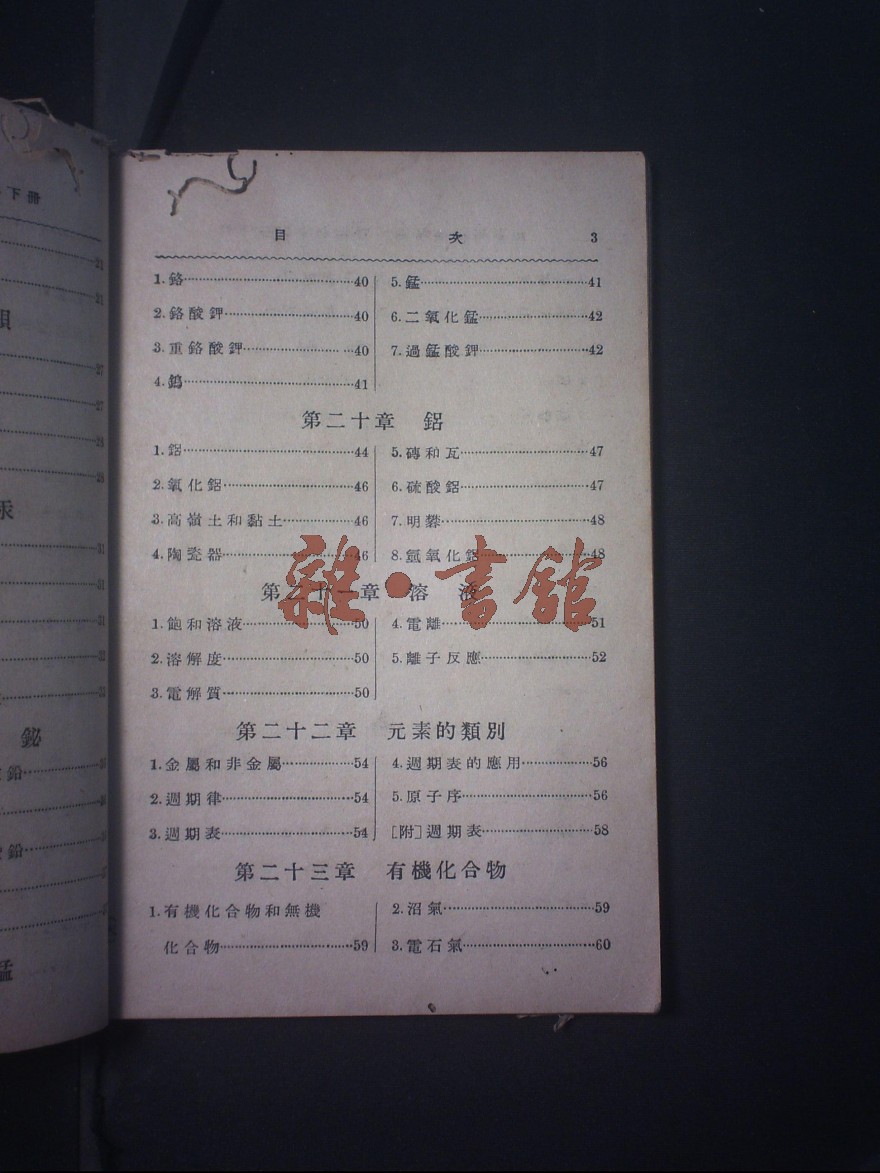 下冊
21
21
27
27
28
28
31
31
31
32
鉍
鉛
鉛
錳
目 次 3
1.鉻……40
2.鉻酸鉀……40
3.重鉻酸鉀……40
4.鎢……41
5.錳……41
6.二氧化錳……42
7.過錳酸鉀……42
第二十章 鋁
1.鋁……44
2.氧化鋁……46
3.高嶺土和黏土……46
4.陶瓷器……46
5.磚和瓦……47
6.硫酸鋁……47
7.明礬……48
8.氫氧化鋁……48
第二十一章 溶液
1.飽和溶液……50
2.溶解度……50
3.電解質……50
4.電離……51
5.離子反應……52
第二十二章 元素的類別
1.金屬和非金屬……54
2.週期律……54
3.週期表……54
4.週期表的應用……56
5.原子序……56
[附]週期表……58
第二十三章 有機化合物
1.有機化合物和無機
化合物……59
2.沼氣……59
3.電石氣……60
雜·書館